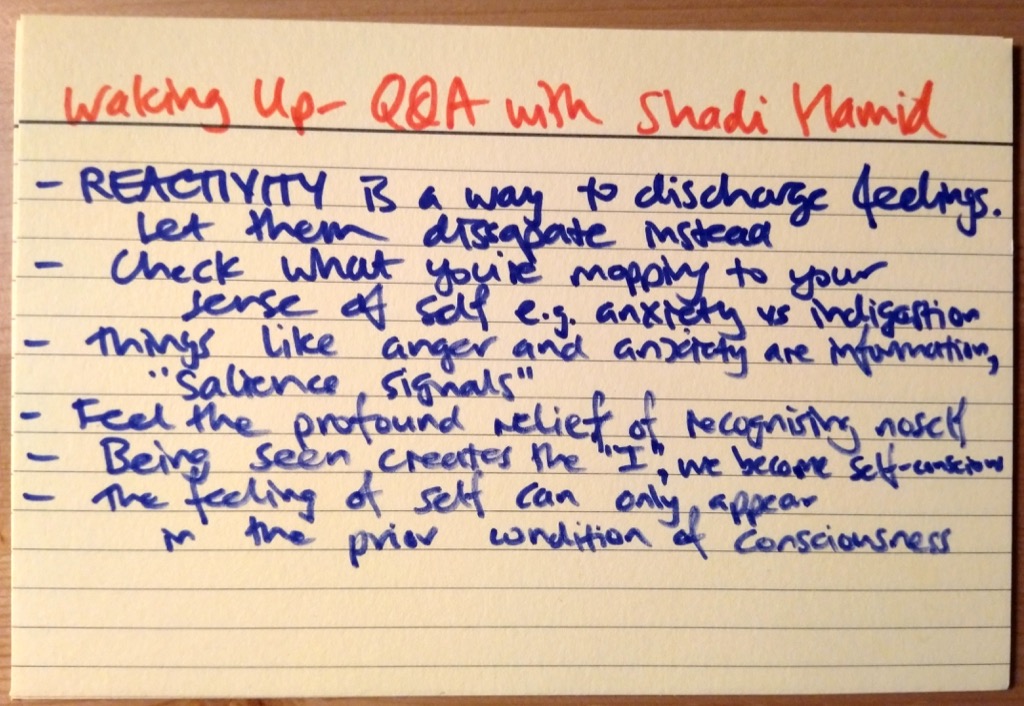 Waking Up - Q&A with Shadi Hamid
- REACTIVITY is a way to discharge feelings.
Let them dissapate instead
- Check what you're mapping to your
sense of self e.g. anxiety vs indigestion
- Things like anger and anxiety are information,
"Salience signals"
- Feel the profound relief of recognising noself
- Being seen creates the "I", we become self-conscious
- The feeling of self can only appear
in the prior condition of consciousness